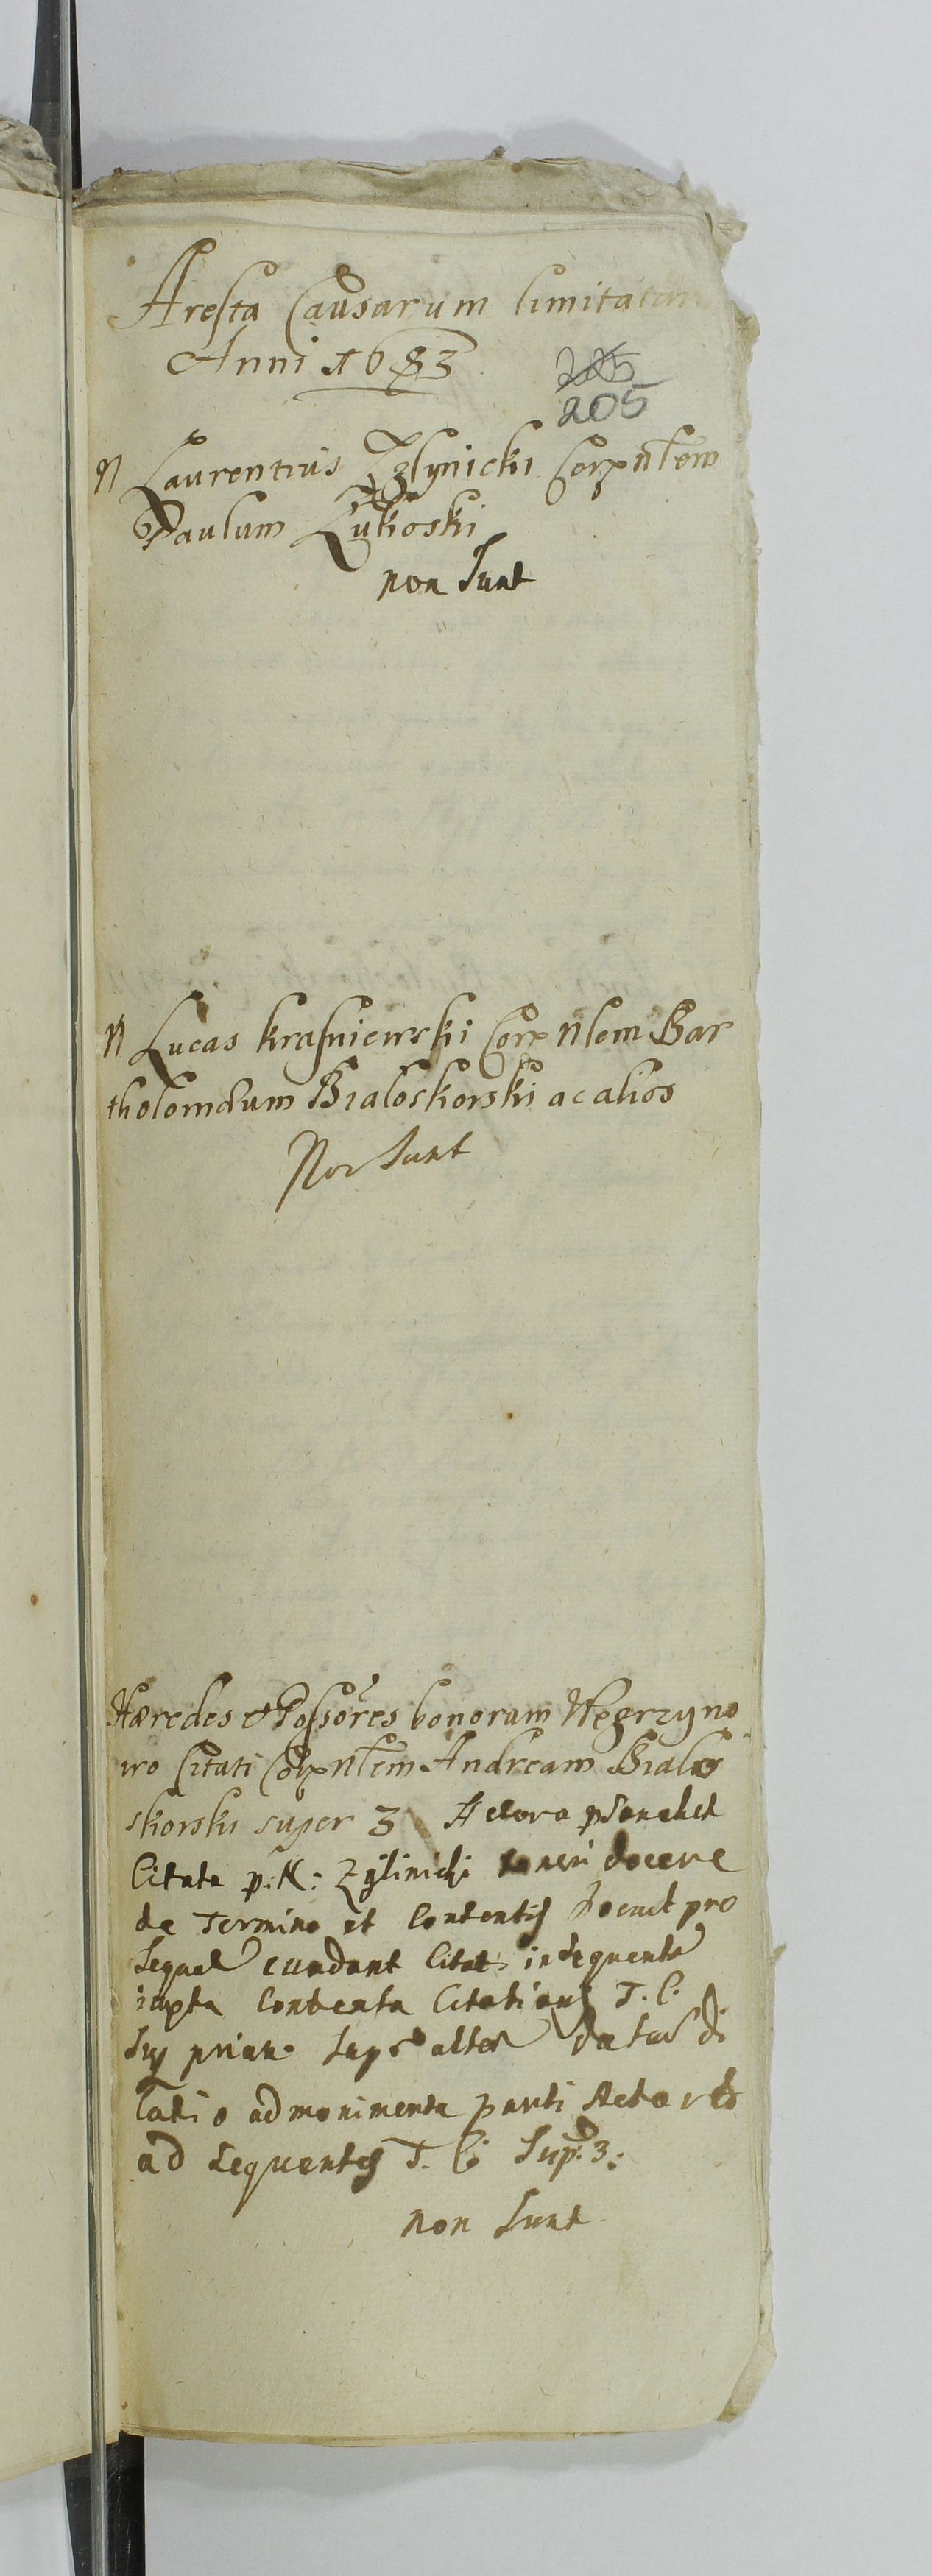 Aresta Causarum limitatarum
Anni 1683
225
205
N Laurentius Zglynicki Corpnlem
Paulum Lukoski
non sunt
N Lucas Krasniewski Corpnlem Bar
tholomæum Bialoskorski ac alios
Non sunt
Hæredes et Possores bonorum Węgrzyno
wo Citati Corpnlem Andream Bialo
skorski super 3 Actora
Citata p. N: Zglinicki docere
de Termino et Contentis docuit pro
sequetur evadant Citati insequentur
iuxta Contenta Citationis T. C.
altera datur di
latio ad monimenta parti Actorea
ad sequentes T. C. Sup. 3:
non sunt